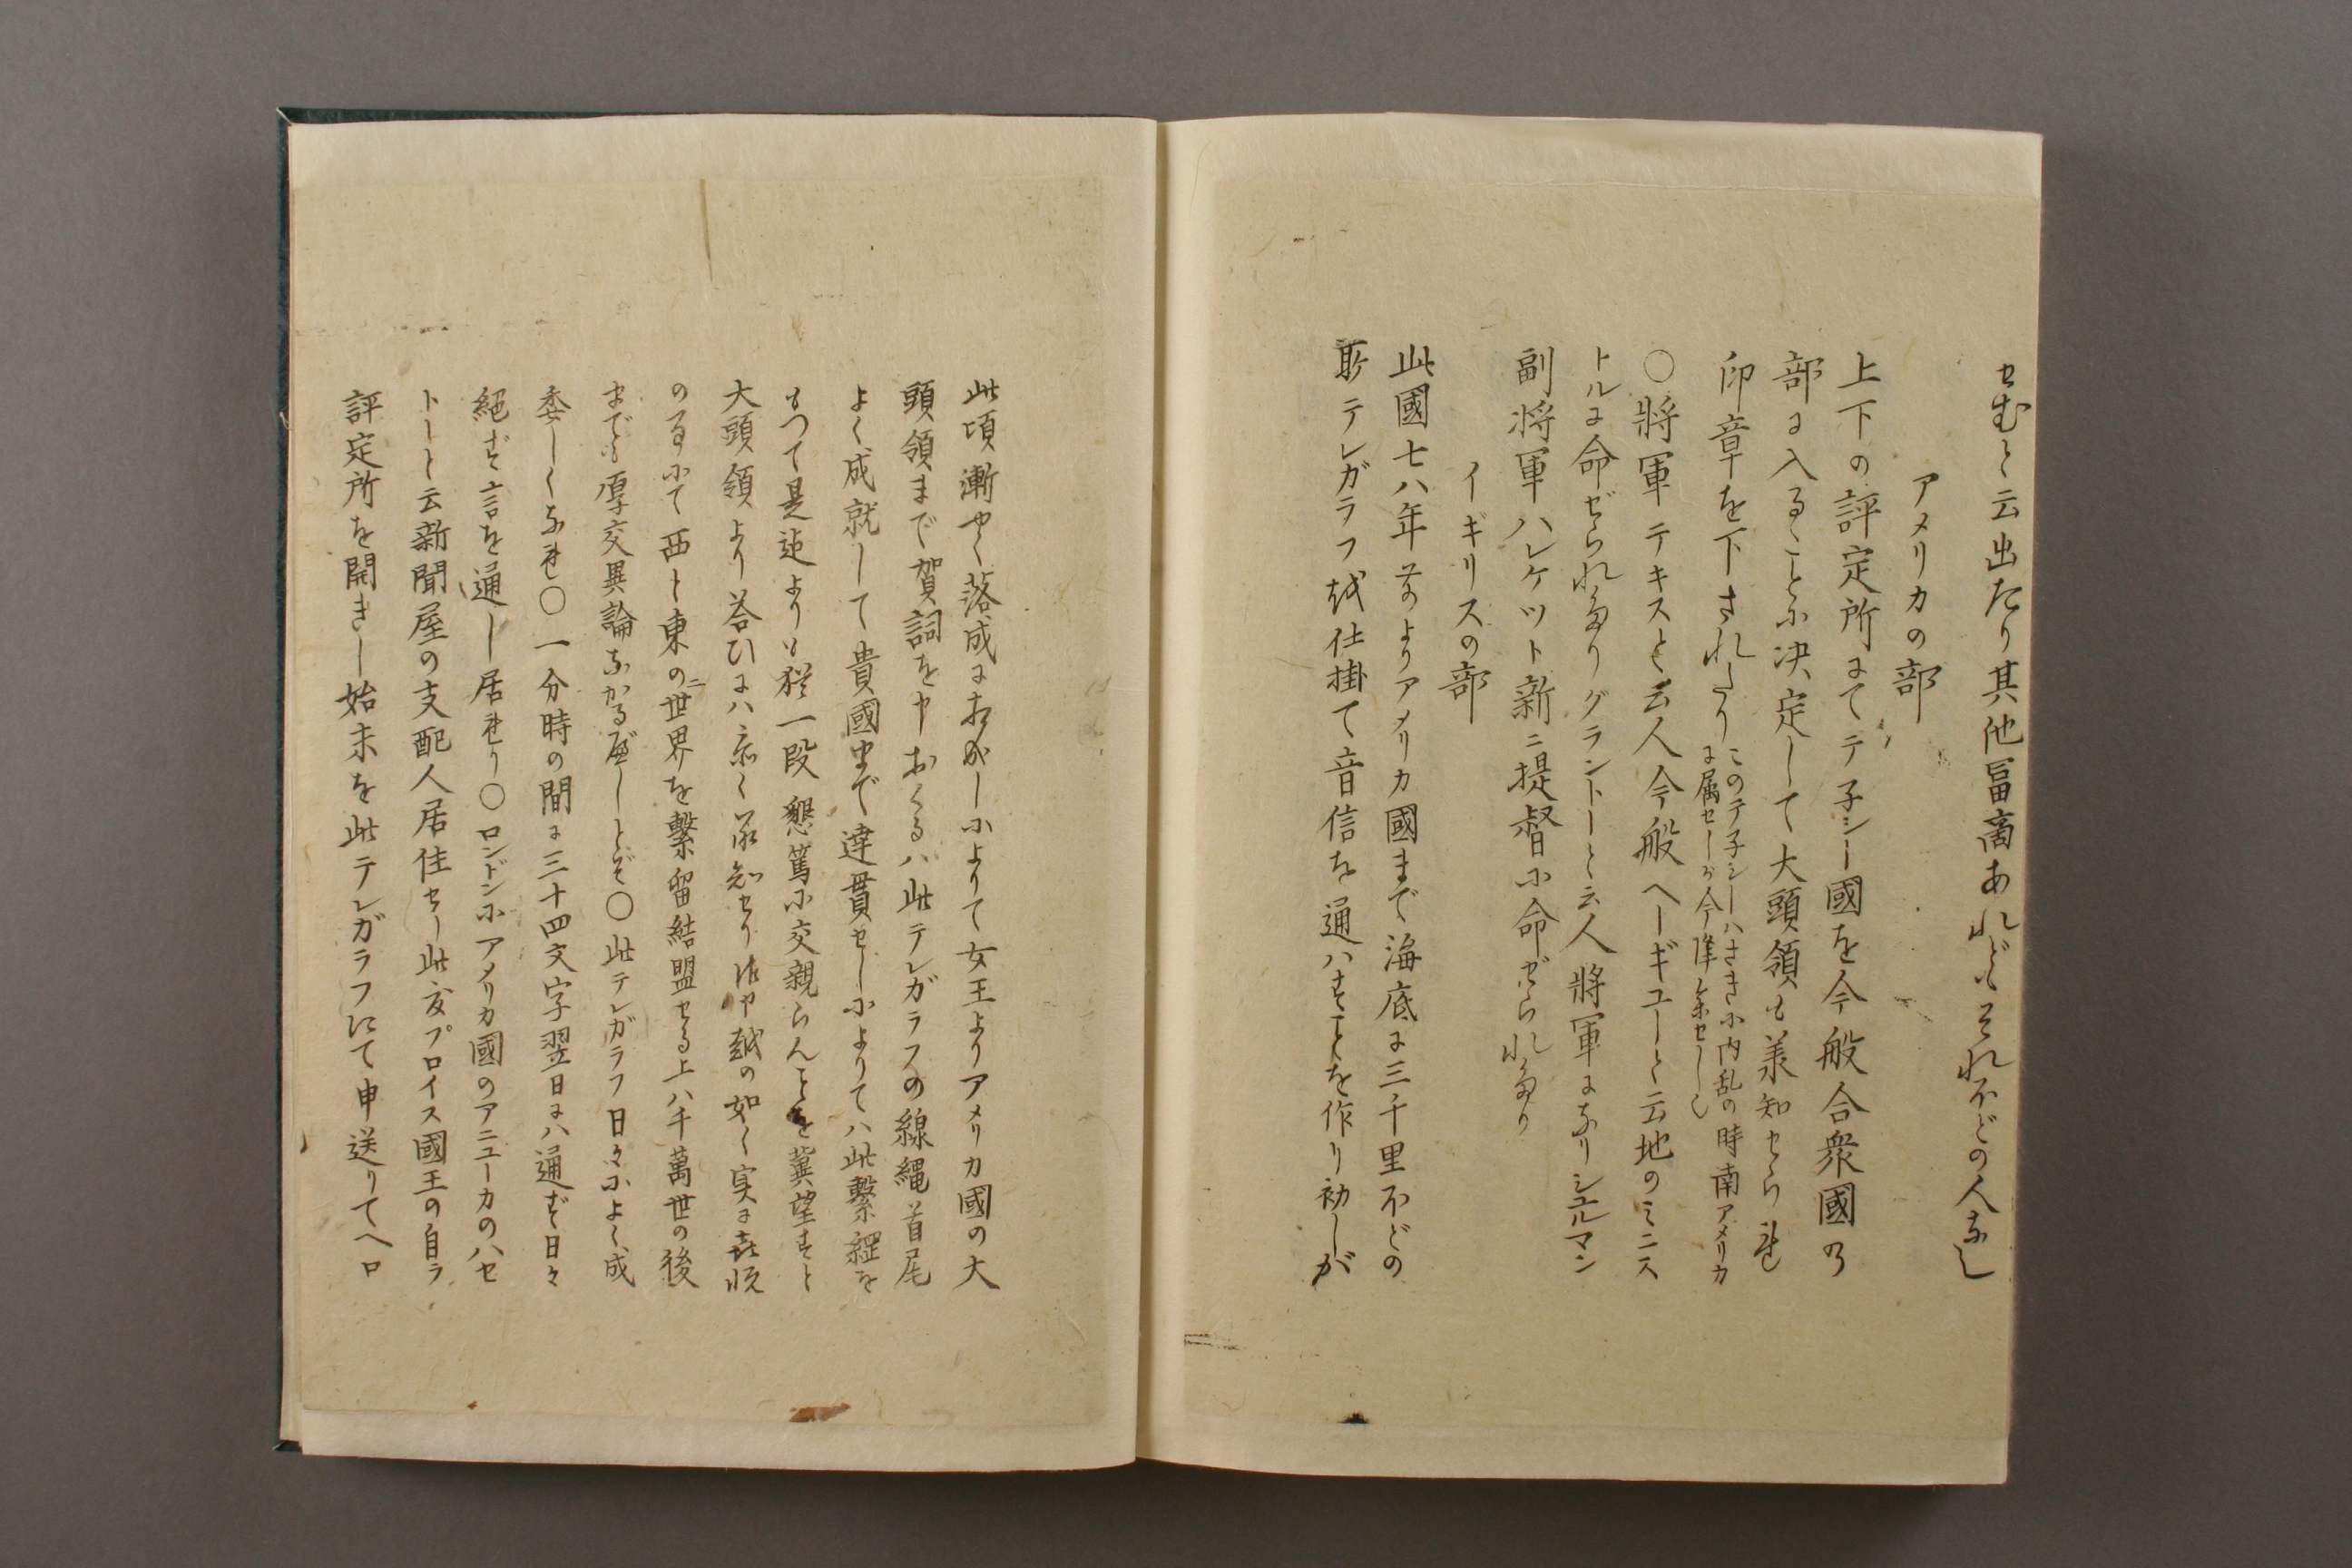 せむと云出たり其他冨商あれどもそれ不どの人なし
アメリカの部
上下の評定所にてテ子シー國を今般合衆國の
部に入ることに决定して大頭領も美知せられ
印章を下されたり
このテ子シーハさきに内乱の時南アメリカ
に属せしが今降參せし也
○將軍テキスと云人今般ヘーギユーと云地のミニス
トルに命ぜられたりグラントーと云人將軍になりシエルマン
副將軍ハレケツト新ニ提督に命ぜられたり
イギリスの部
此國七八年前よりアメリカ國まで海底に三千里不どの
所テレガラフを仕掛て音信を通ハすことを作り初しが
此頃漸やく落成におよびしによりて女王よりアメリカ國の大
頭領まで賀詞を申おくるハ此テレガラフの線縄首尾
よく成就して貴國まで達貫せしによりてハ此繫縄を
もつて是迄よりも猶一段懇篤に交親らんことを冀望すと
大頭領より答ひにハ忝く承知せり 越の如く実に喜悦
のる にて西ト東のニ世界を繫留結盟せる上ハ千萬世の後
までも厚交異論なかるべしとぞ○此テレガラフ日々によく成
委しくなれ○一分時の間に三十四文字翌日にハ通ず日々
絕ず言を通し居れり○ロンドンにアメリカ國のアニユーカのハセ
トーと云新聞屋の支配人居住せし此度プロイス國王の自ラ
評定所を開きし始末を此テレガラフにて申送りてヘロ